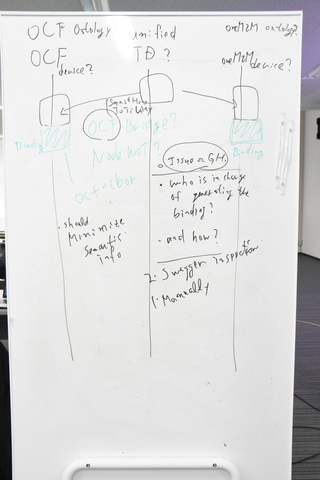 OCF Ontology
unified
oneM2M ontology?
OCF
device?
TD ?
oneM2M
device?
Binding
OCF
Bridge?
Binding
Node WoT ?
Issue on GH.
• who is in charge
of generating the
binding?
• and how?
• should
Minimize
semantic
info
2. Swagger Inspector
1. Manually